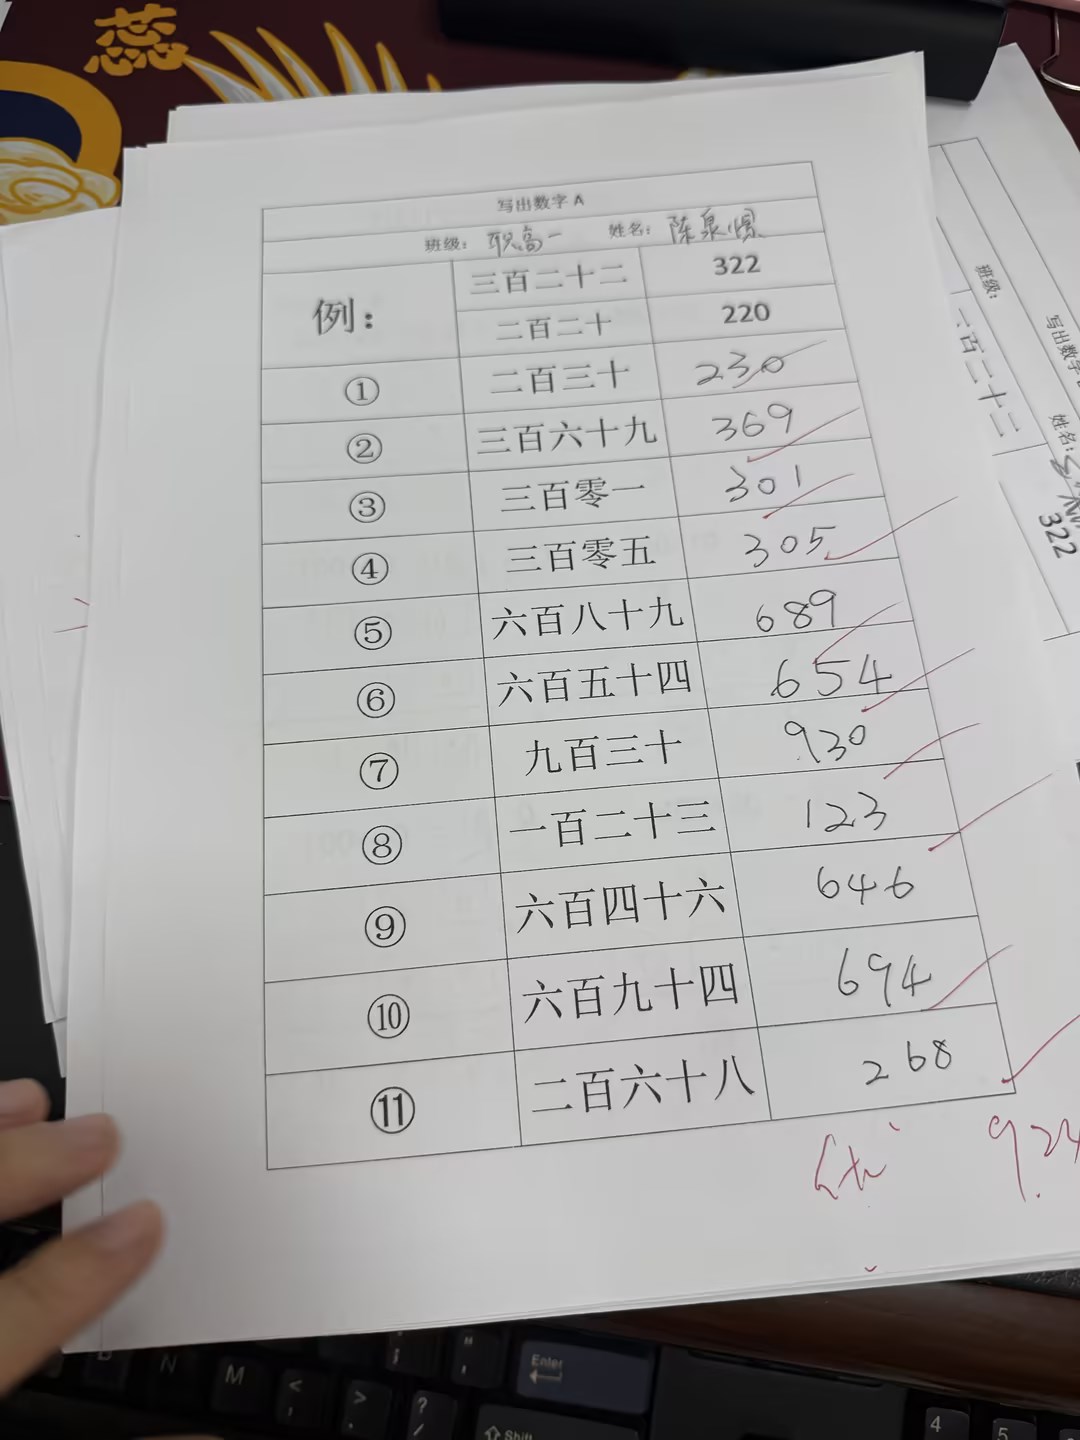 蕊
写出数字 A
班级： 职高一 姓名： 陈泉
例： 三百二十二 322
二百二十 220
① 二百三十 230
② 三百六十九 369
③ 三百零一 301
④ 三百零五 305
⑤ 六百八十九 689
⑥ 六百五十四 654
⑦ 九百三十 930
⑧ 一百二十三 123
⑨ 六百四十六 646
⑩ 六百九十四 694
⑪ 二百六十八 268
优 9.24
写出数字
班级： 姓名：
二百二十二
322
N M < > ? Enter Shift 4 5